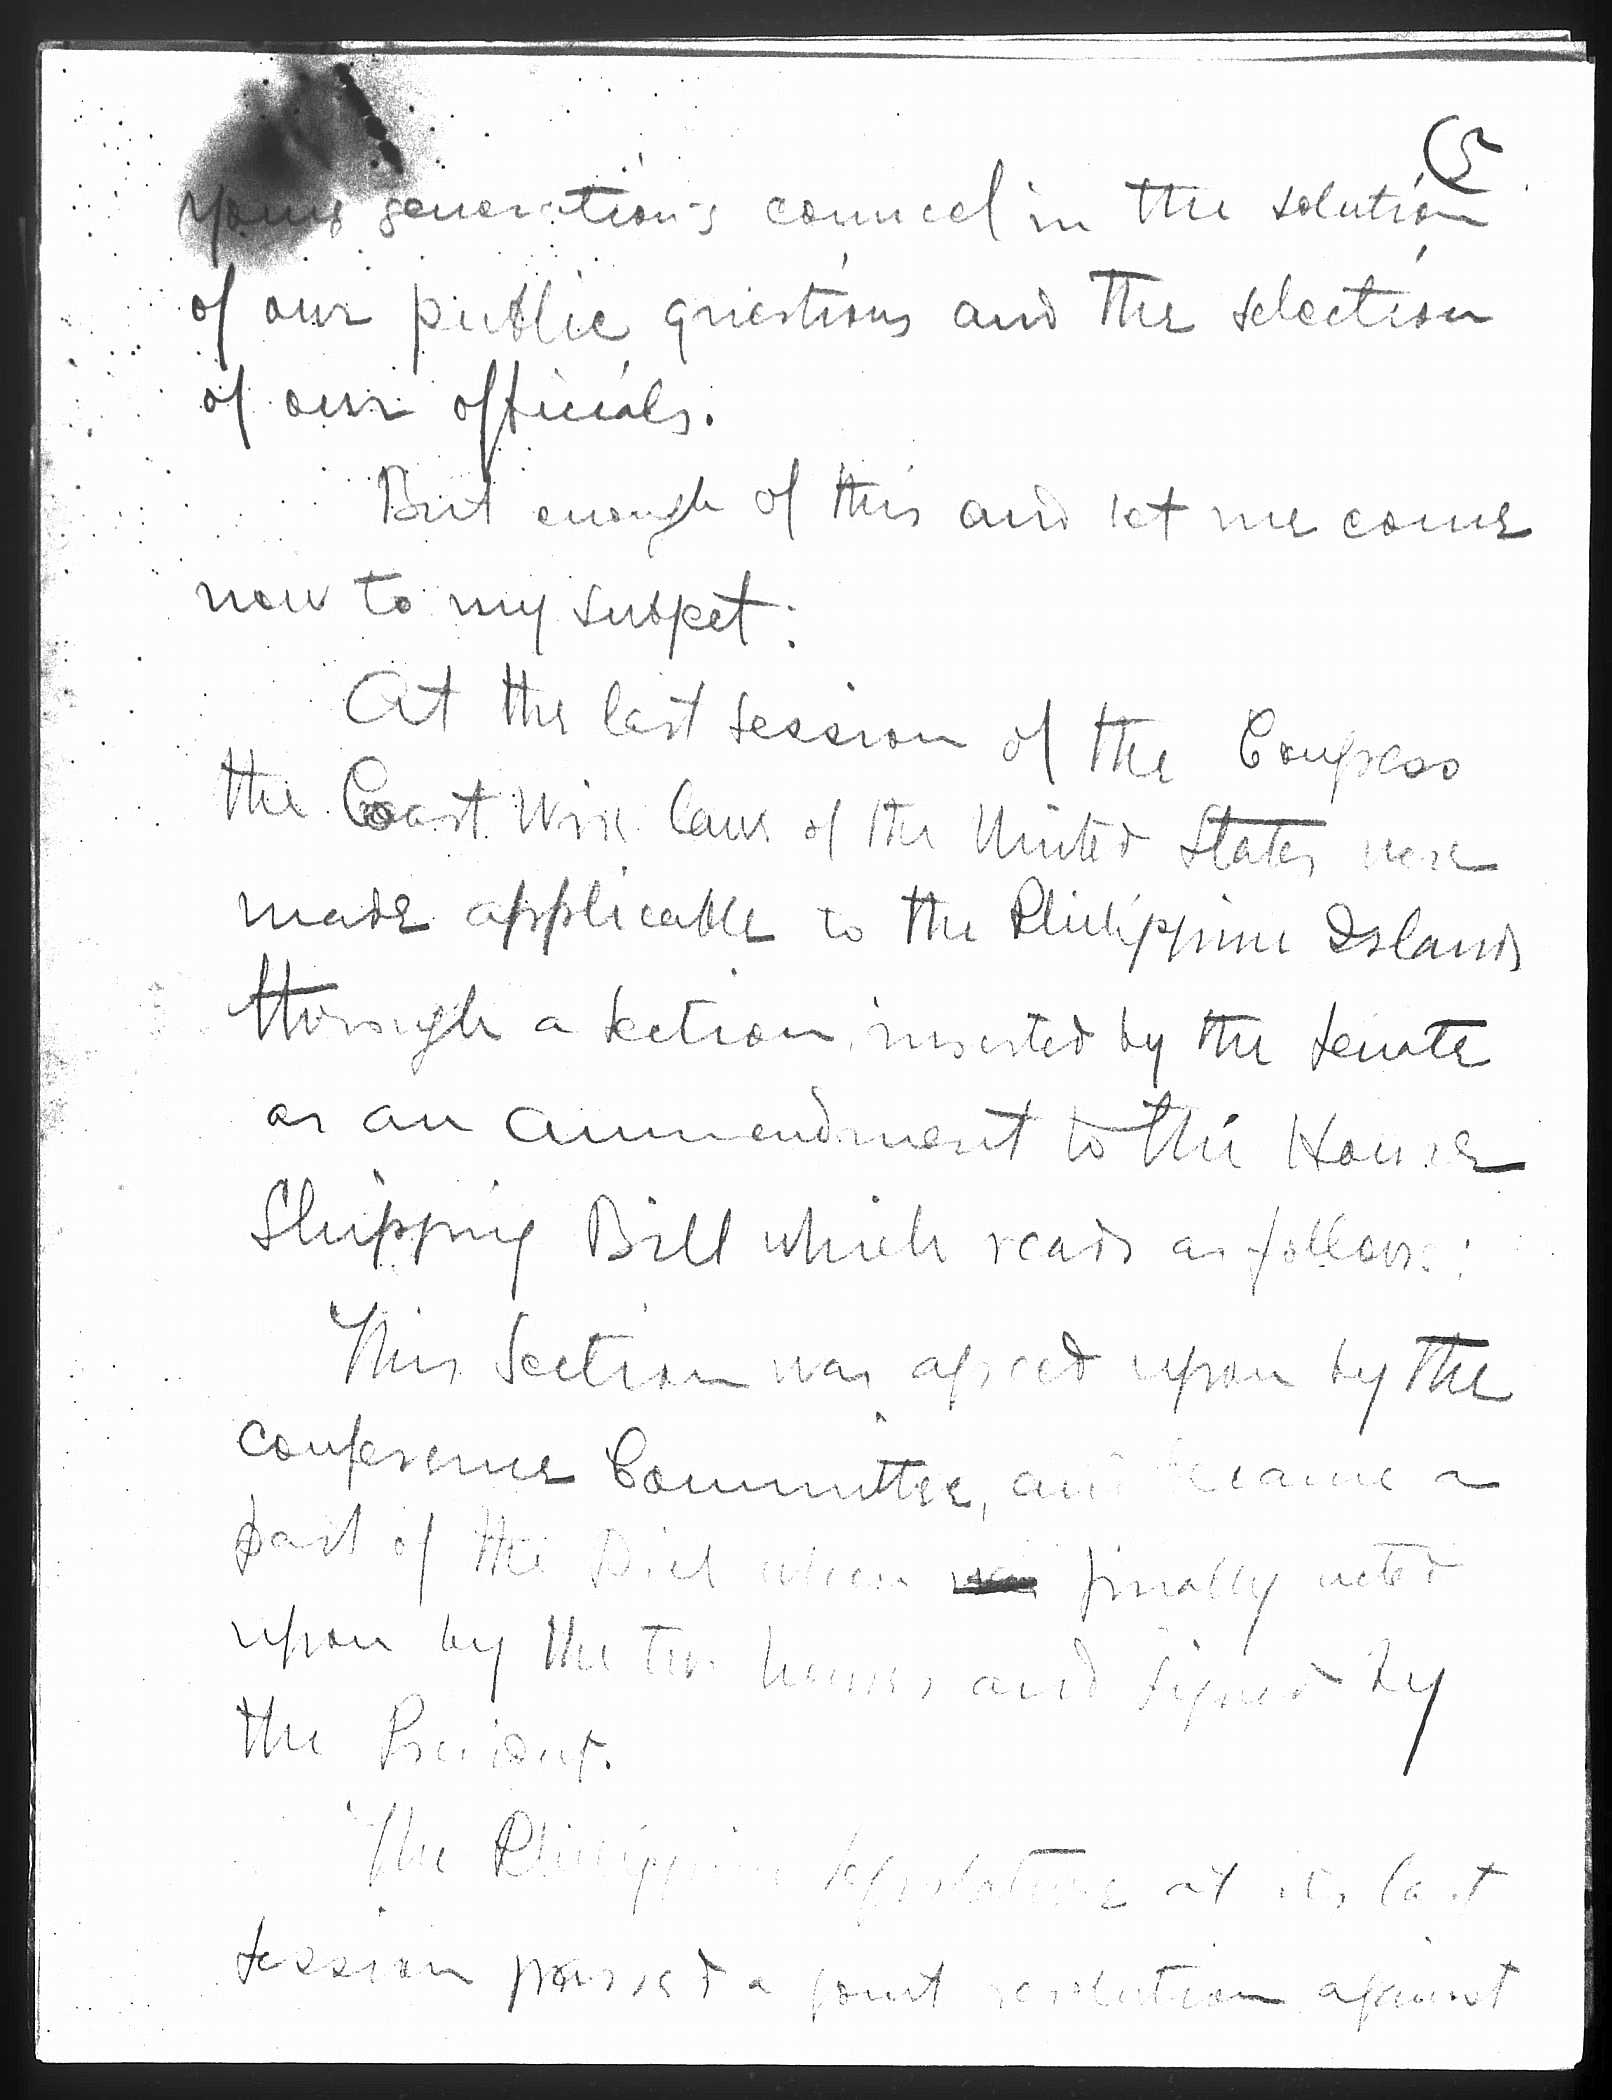 5
young generation's councel in the solution
of our public questions and the selection
of our officials.
But enough of this and let me come
now to my subject:
At the last session of the Congress
the Coast Wise laws of the United States were
made applicable to the Philippine Islands
through a section inserted by the Senate
as an ammendment to the House
Shipping Bill which reads as follows:
This Section was agreed upon by the
conference Committee, and became a
part of the Bill when finally voted
upon by the two houses and signed by
the President.
The Philippine legislature at its last
session passed a joint resolution against